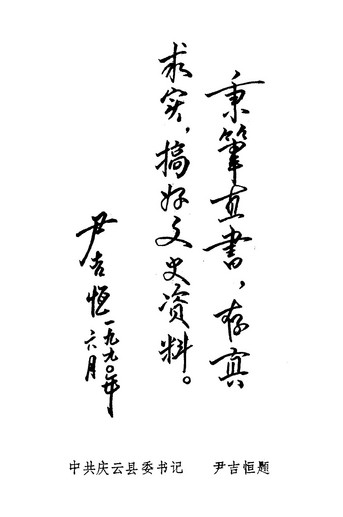 秉笔直書，存真
求实，搞好文史资料。
尹吉恒一九九〇年
六月
中共庆云县委书记　尹吉恒题